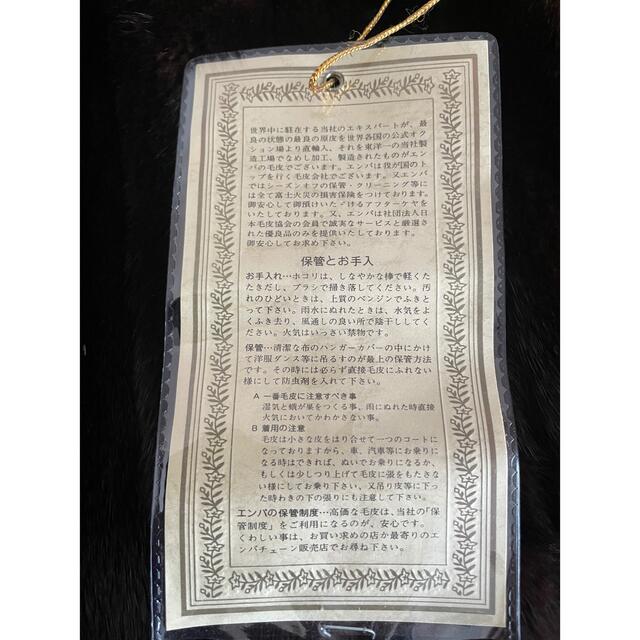 世界中に駐在する当社のエキスパートが、最
良の状態の最良の原皮を世界各国の公式オク
ション場より直輸入、それを東洋一の当社製
造工場でなめし加工、製造されたものがエン
バの毛皮でございます。エンバは我が国のト
ップを行く毛皮会社でございます。又エンバ
ではシーズンオフの保管・クリーニング等に
は全て富士火災の損害保険をつけております。
御安心して御預けいただけるアフターケヤを
いたしております。又、エンバは社団法人日
本毛皮協会の会員で誠実なサービスと厳選さ
れた優良品のみを提供いたしております。
御安心してお求め下さい。
保管とお手入
お手入れ…ホコリは、しなやかな棒で軽くた
たきだし、ブラシで掃き落してください。汚
れのひどいときは、上質のベンジンでふきと
って下さい。雨水にぬれたときは、水気をよ
くふき去り、風通しの良い所で陰干ししてく
ださい。火気はいっさい禁物です。
保管…清潔な布のハンガーカバーの中にかけ
て洋服ダンス等に吊るすのが最上の保管方法
です。その時には必らず直接毛皮にふれない
様にして防虫剤を入れて下さい。
A 一番毛皮に注意すべき事
湿気と蛾が巣をつくる事、雨にぬれた時直接
火気においてかわかさない事。
B 着用の注意
毛皮は小さな皮をはり合せて一つのコートに
なっておりますから、車、汽車等にお乗りに
なる時はできれば、ぬいでお乗りになるか、
もしくは少しつり上げて毛皮に張をもたさな
い様にしてお乗り下さい、又吊り皮等に下っ
た時わきの下の張りにも注意して下さい。
エンバの保管制度…高価な毛皮は、当社の「保
管制度」をご利用になるのが、安心です。
くわしい事は、お買い求めの店か最寄りのエ
ンバチェーン販売店でお尋ね下さい。